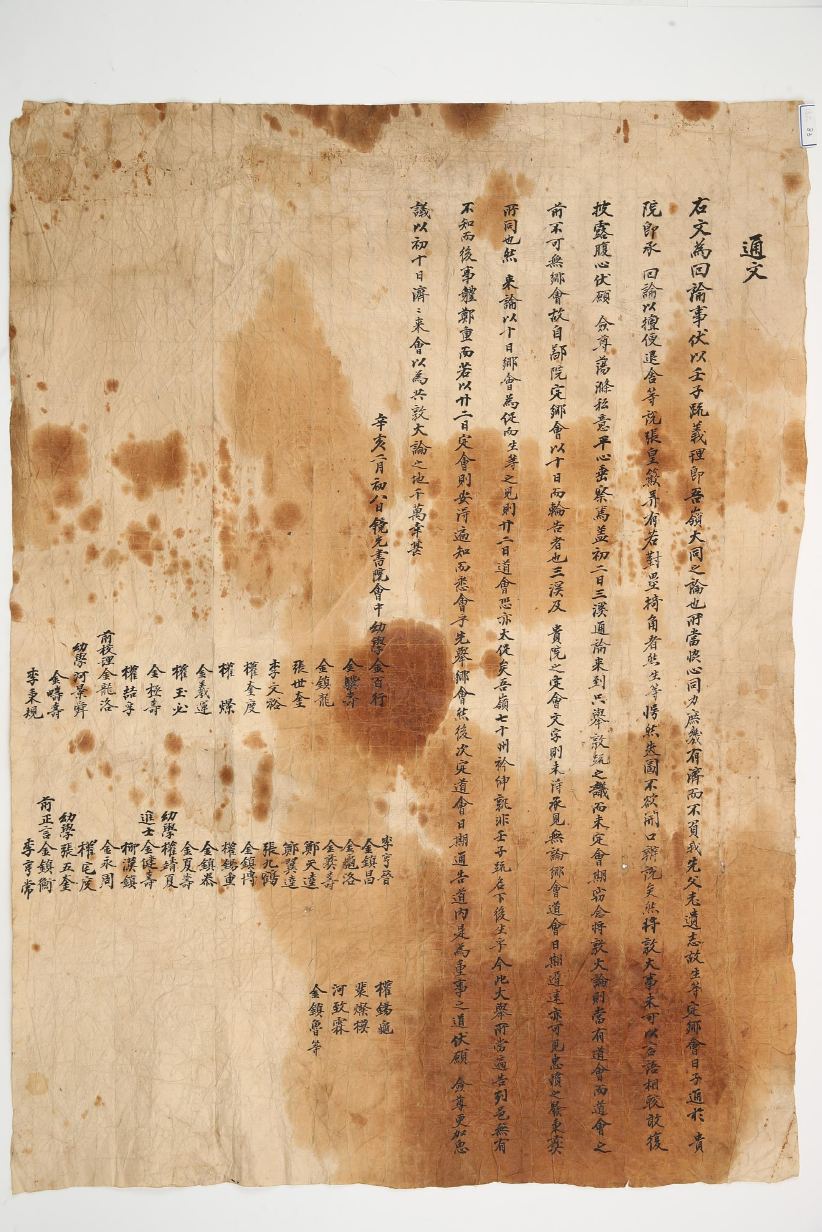 通文
右文爲回諭事伏以壬子疏義理卽吾嶺大同之論也所當悏心同力庶幾有濟而不負我先父老遺志故生等定鄕會日子通於 貴
院卽承 回諭以擅便退舍等說張皇簸弄有若對壘掎角者然生等愕然失圖不欲開口辨說矣然將敦大事未可以言語相較敢復
披露腹心伏願 僉尊蕩滌私意平心垂察焉盖初二日三溪通論來到只擧敦疏之議而未定會期窃念將敦大論則當有道會而道會之
前不可無鄕會故自鄙院定鄕會以十日而輪告者也三溪及 貴院之定會文字則未得承見無論鄕會道會日期遲速亦可見忠憤之發秉彛
所同也然 來諭以十日鄕會爲促而生等之見則廿二日道會恐亦太促矣吾嶺七十州衿紳孰非壬子疏名下後生乎今此大擧所當遍告列邑無有
不知而後事軆鄭重而若以廿二日定會則安得遍知而悉會乎先擧鄕會然後次定道會日期通告道內是爲重事之道伏願 僉尊更加思
議以初十日濟〻來會以爲共敦大論之地千萬幸甚
辛亥二月初八日鏡光書院會中幼學金百行
金驥壽
金鎭龍
張世奎
李文裕
權奎度
權㸅
金羲運
權玉必
金極壽
權喆亨
前校理金龍洛
幼學河景舜
金疇壽
李秉規
李亨晉
金鎭昌
金龜洛
金奕壽
鄭天達
鄭翼達
張九鶴
金鎭博
權鶴重
金鎭泰
金夏壽
幼學權靖夏
進士金健壽
柳漢鎭
金永周
權宅度
幼學張五奎
前正言金鎭衡
李亨常
權錫龜
裴燦模
河致霖
金鎭魯等